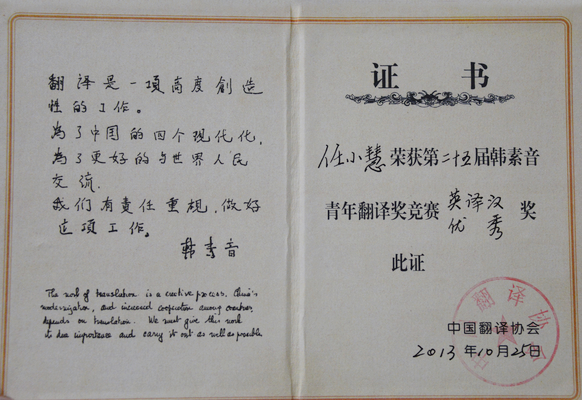 翻译是一項高度創造
性的工作。
为了中国的四个现代化,
为了更好的与世界人民
交流.
我们有責任重視,做好
这項工作。
韩素音
The work of translation is a creative process. China's
modernization, and increased cooperation among countries,
depends on translation. We must give this work
its due importance and carry it out as well as possible
证书
任小慧荣获第二十五届韩素音
青年翻译奖竞赛 英译汉 奖
优秀
此证
中国翻译协会
2013年10月25日
中国翻译协会